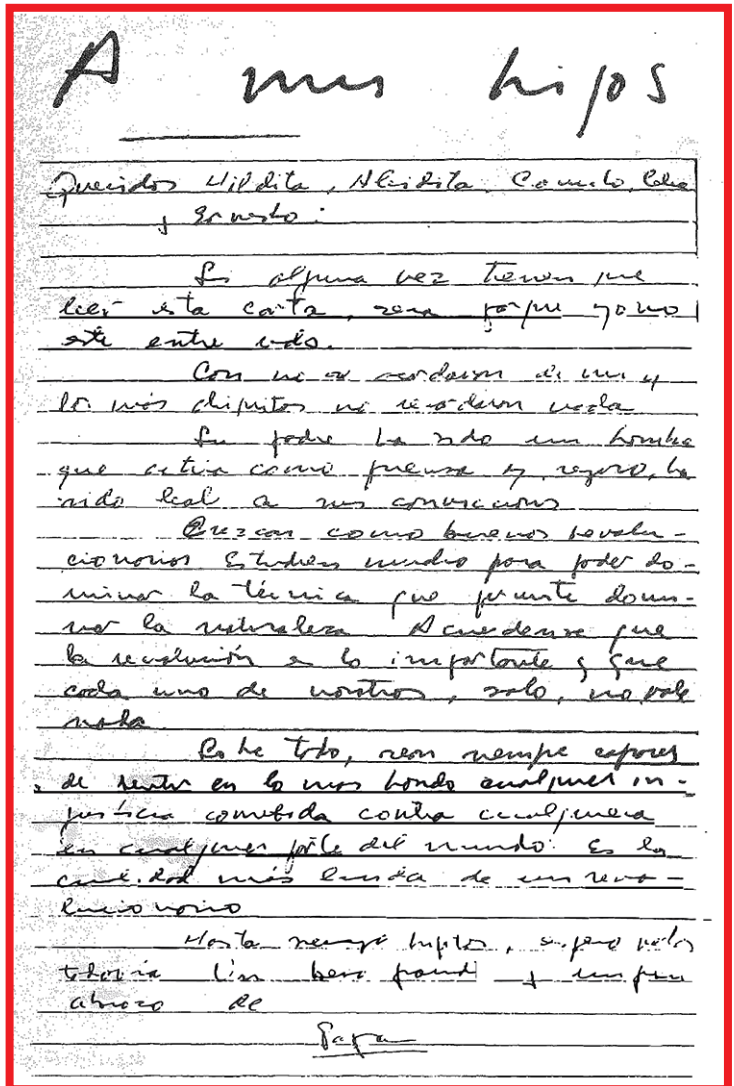 A mis hijos
Queridos Hildita, Aleidita, Camilo, Celia
y Ernesto:
Si alguna vez tienen que
leer esta carta, sera porque yo no
esté entre uds.
Casi no se acordaran de mi y
los más chiquitos no recordaran nada
Su padre ha sido un hombre
que actúa como piensa y, seguro, ha
sido leal a sus convicciones
Crezcan como buenos revolu-
cionarios Estudien mucho para poder do-
minar la técnica que permite domi-
nar la naturaleza Acuerdense que
la revolución es lo importante y que
cada uno de nosotros, solo, no vale
nada
Sobre todo, sean siempre capaces
de sentir en lo mas hondo cualquier in-
justicia cometida contra cualquiera
en cualquier parte del mundo. Es la
cualidad más linda de un revo-
lucionario
Hasta siempre hijitos, espero verlos
todavía Un beso grande y un gran
abrazo de
Papa